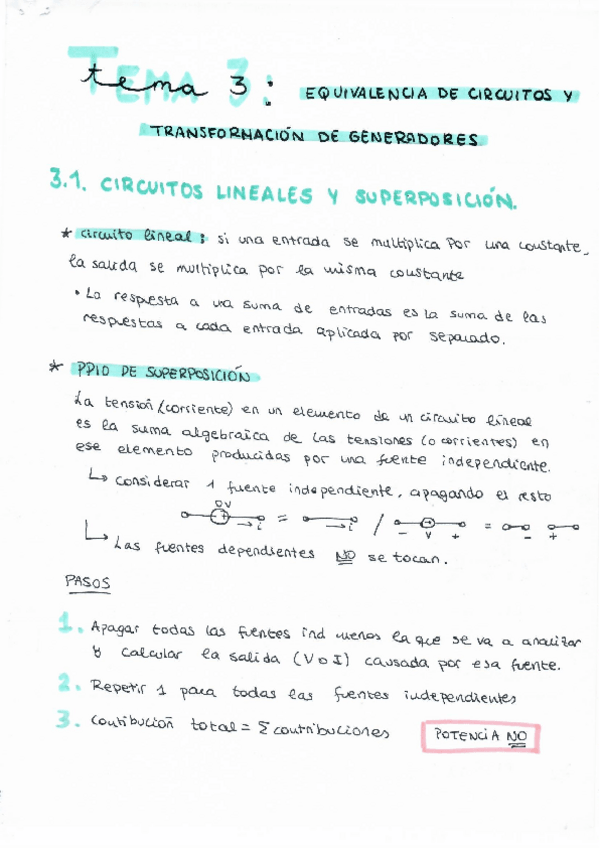 Tema 3: EQUIVALENCIA DE CIRCUITOS Y
TRANSFORMACIÓN DE GENERADORES
3.1. CIRCUITOS LINEALES Y SUPERPOSICIÓN.
* circuito lineal: si una entrada se multiplica por una constante,
la salida se multiplica por la misma constante
• La respuesta a una suma de entradas es la suma de las
respuestas a cada entrada aplicada por separado.
* PPIO DE SUPERPOSICIÓN
La tensión (corriente) en un elemento de un circuito lineal
es la suma algebraica de las tensiones (o corrientes) en
ese elemento producidas por una fuente independiente.
↳ considerar 1 fuente independiente, apagando el resto
0V
+ i = i / - V + = - +
↳ Las fuentes dependientes NO se tocan.
PASOS
1. Apagar todas las fuentes ind menos la que se va a analizar
y calcular la salida (V o I) causada por esa fuente.
2. Repetir 1 para todas las fuentes independientes
3. Contibución total = Σ contribuciones
POTENCIA NO